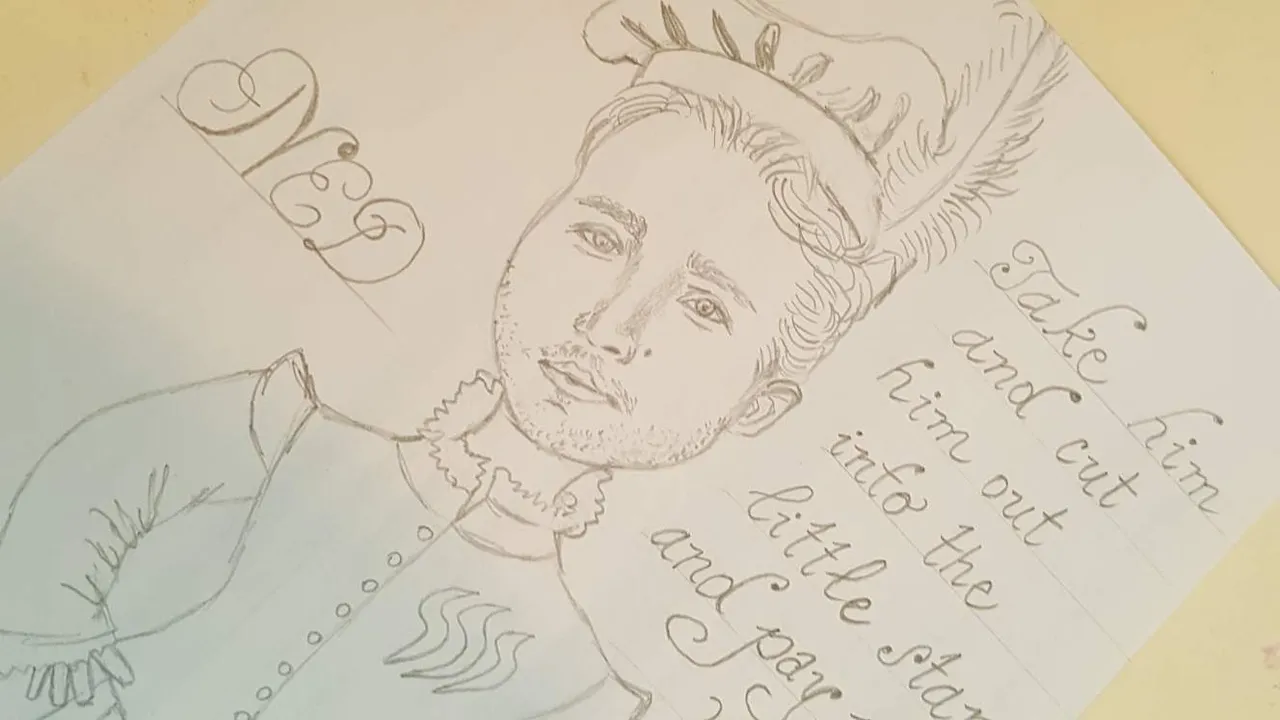 NED
Take him
and cut
him out
into the
little star
and pay